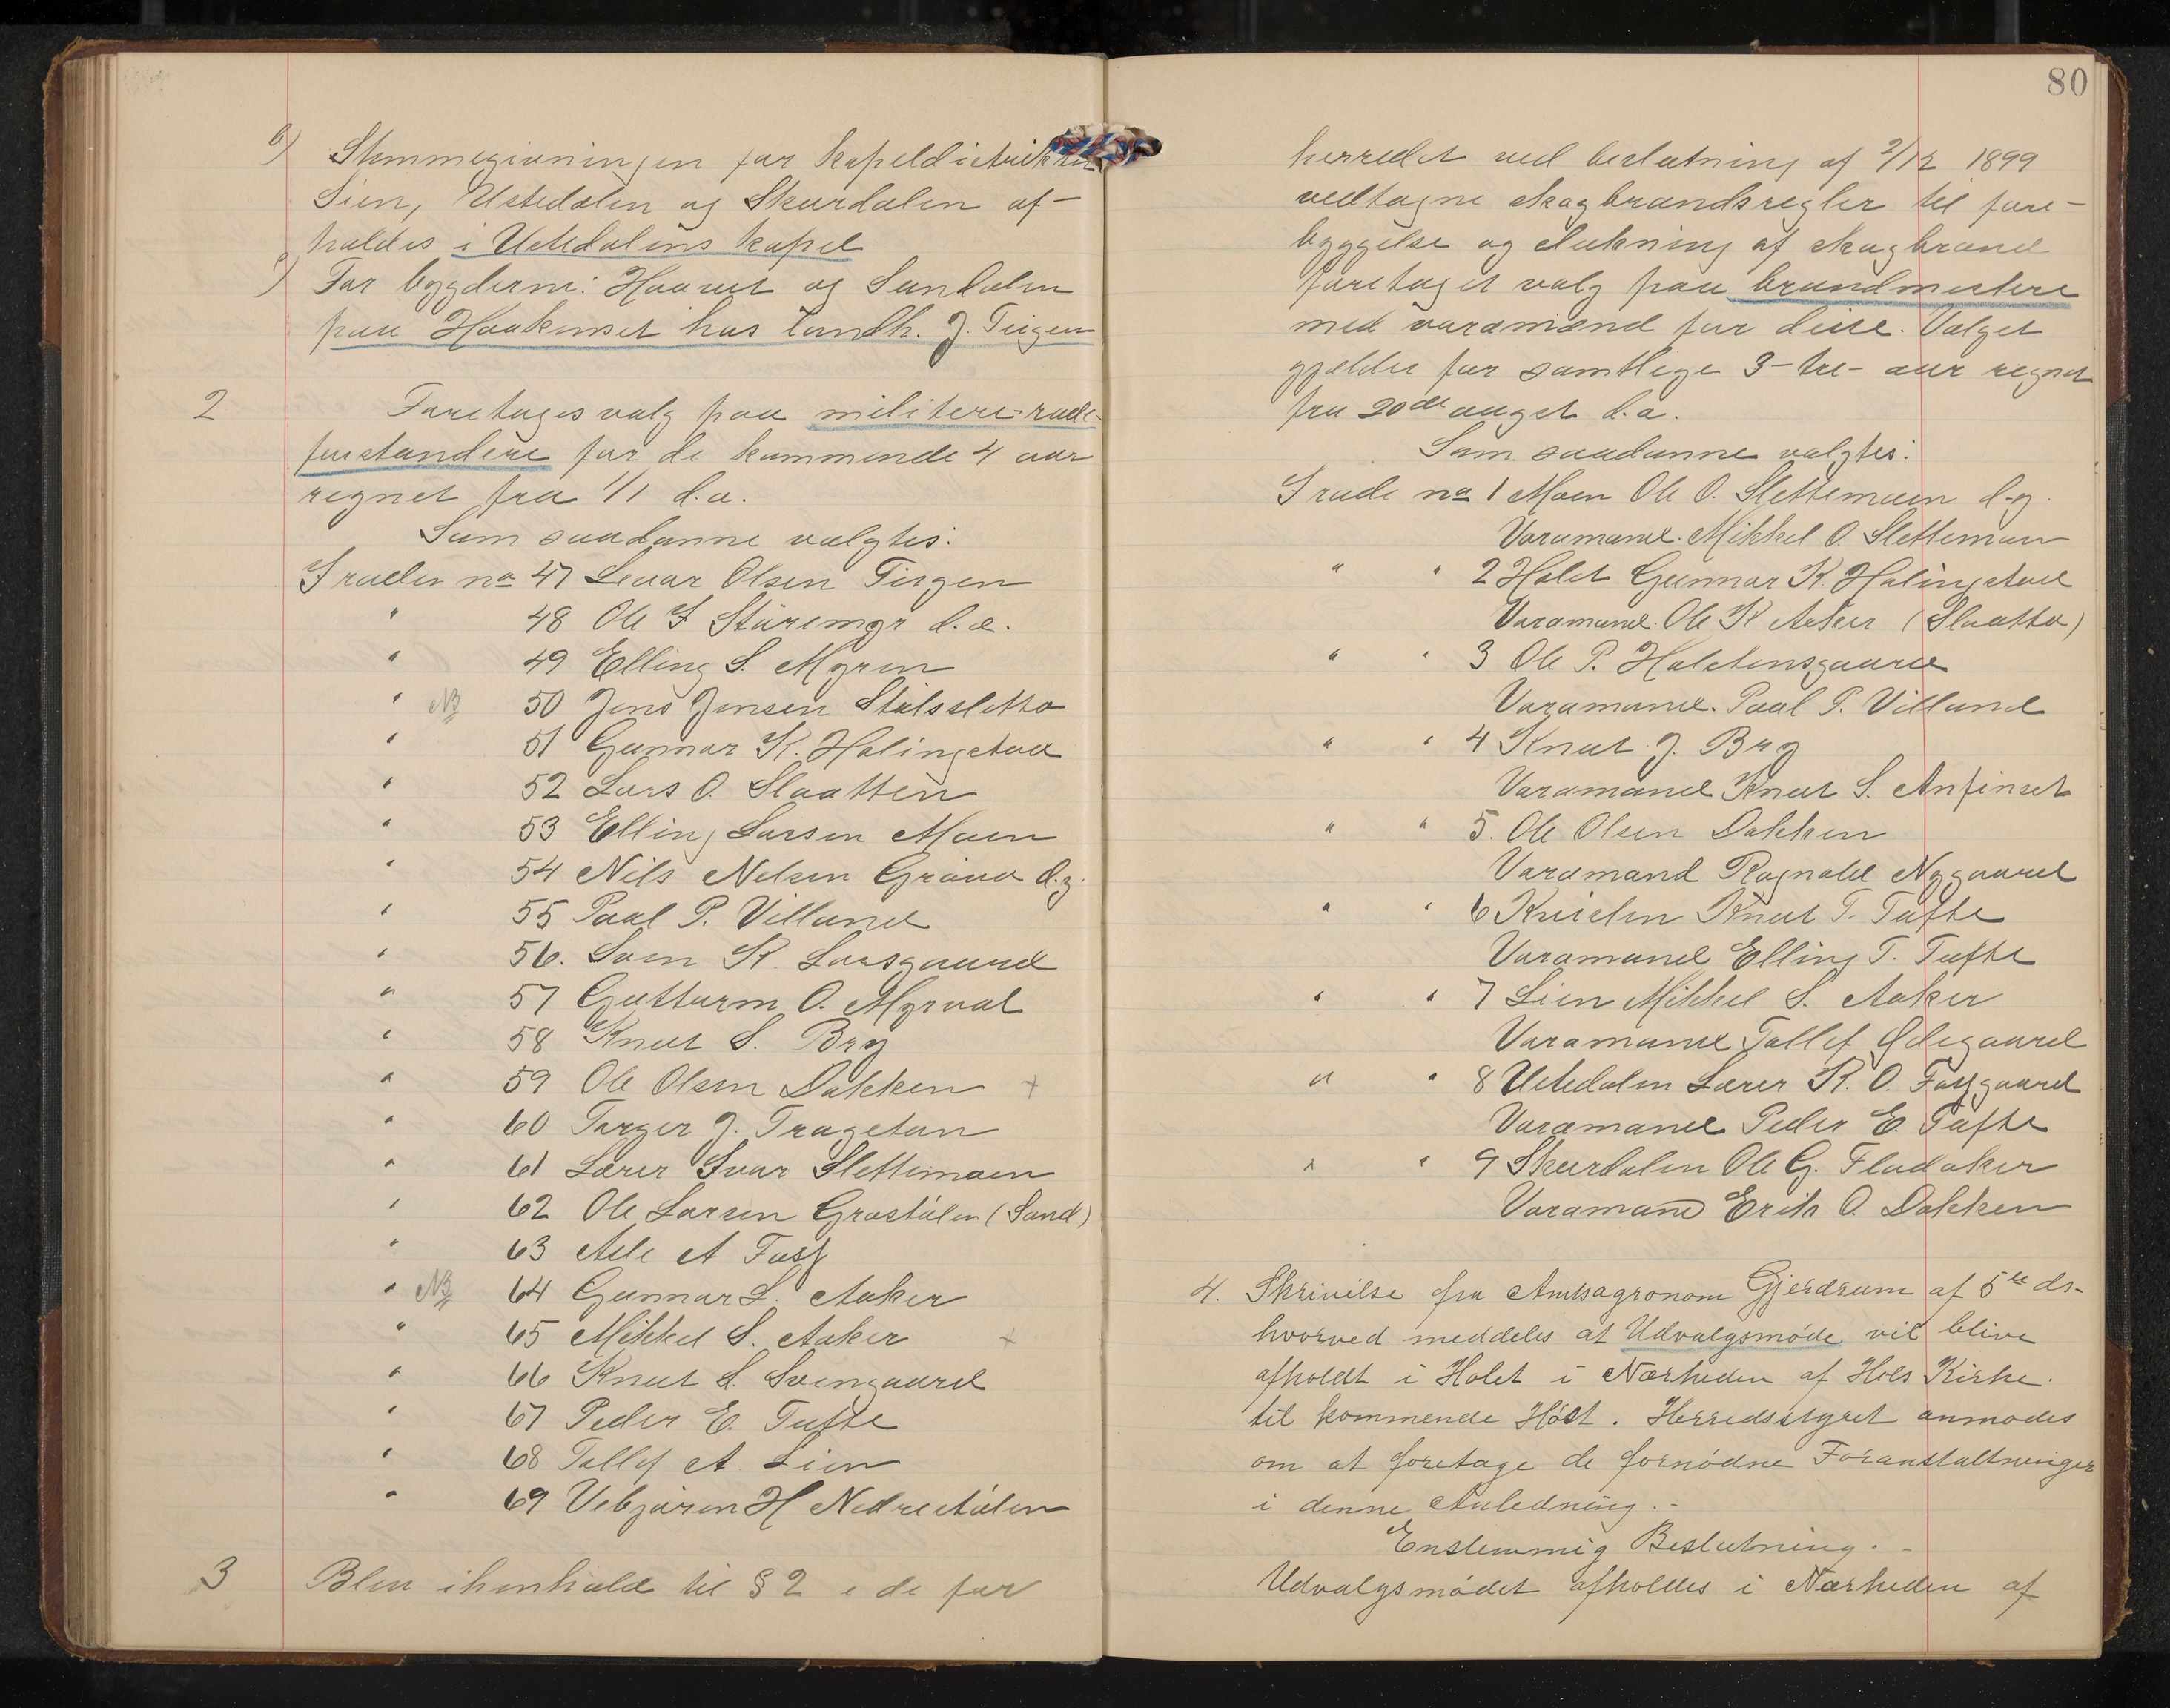 b) Stemmegivningen for kapeldistriktet
Lien, Ustedalen og Skurdalen af-
holdes i Ustedalens kapel
c) For bygderne: Hovet og Sundalen
paa Haakenset hos landh. J. Tirgen
2 Foretages valg paa militære rode-
forstandere for de kommende 4 aar
regnet fra 1/1 d.a.
Som saadanne valgtes:
I roden no 47 Sevar Olsen Tirgen
" 48 Ole I Støremyr d.e.
" 49 Elling S. Myren
" NB 50 Jens Jensen Stølssletto
" 51 Gunnar K. Holingstad
" 52 Lars O. Slaatten
" 53 Elling Larsen Moen
" 54 Nils Nelsen Grøno d.y.
" 55 Paal P. Villand
" 56. Sven K. Larsgaard
" 57 Gutturm O. Myrvol
" 58 Knut S. Bry
" 59 Ole Olsen Dokken +
" 60 Torger J. Trageton
" 61 Lærer Ivar Slettemoen
" 62 Ole Larsen Grøstølen (Sand)
" 63 Asle A Foss
" NB 64 Gunnar L. Aaker
" 65 Mikkel S. Aaker +
" 66 Knut S. Svengaard
" 67 Peder E. Tufte
" 68 Tollef A Lien
" 69 Vebjørn H Nedrestølen
3 Blev i henhold til § 2 i de for
80
herredet ved beslutning af 2/12 1899
vedtagne skogbrandsregler til fore-
byggelse og slukning af skogbrand
foretaget valg paa brandmestere
med varamænd for disse. Valget
gjælder for samtlige 3-tre- aar regnet
fra 20de august d.a.
Som saadanne valgtes:
I rode no 1 Moen Ole O. Slettemoen d.y.
Varamand. Mikkel O. Slettemoen
" " 2 Holet Gunnar K. Holingstad
Varamand. Ole K Aaker (Slaatto)
" " 3 Ole P. Holstensgaard
Varamand. Paal P. Villand
" " 4 Knut J. Bry
Varamand Knut S. Anfinset
" " 5. Ole Olsen Dokken
Varamand Ragnald Nygaard
" " 6 Kvislen Knut T. Tufte
Varamand Elling T. Tufte
" " 7 Lien Mikkel S. Aaker
Varamand Tollef Ødegaard
" " 8 Ustedalen Lærer K. O. Fossgaard
Varamand Peder E. Tufte
" " 9 Skurdalen Ole G. Fladaker
Varamand Erik O. Dokken
4. Skrivelse fra Amtsagronom Gjerdrum af 5te ds-
hvorved meddeles at Udvalgsmøde vil blive
afholdt i Holet i Nærheden af Hols Kirke.
til kommende Høst. Herredsstyret anmodes
om at foretage de fornødne Foranstaltninger
i denne Anledning.-
Enstemmig Beslutning.-
Udvalgsmødet afholdes i Nærheden af